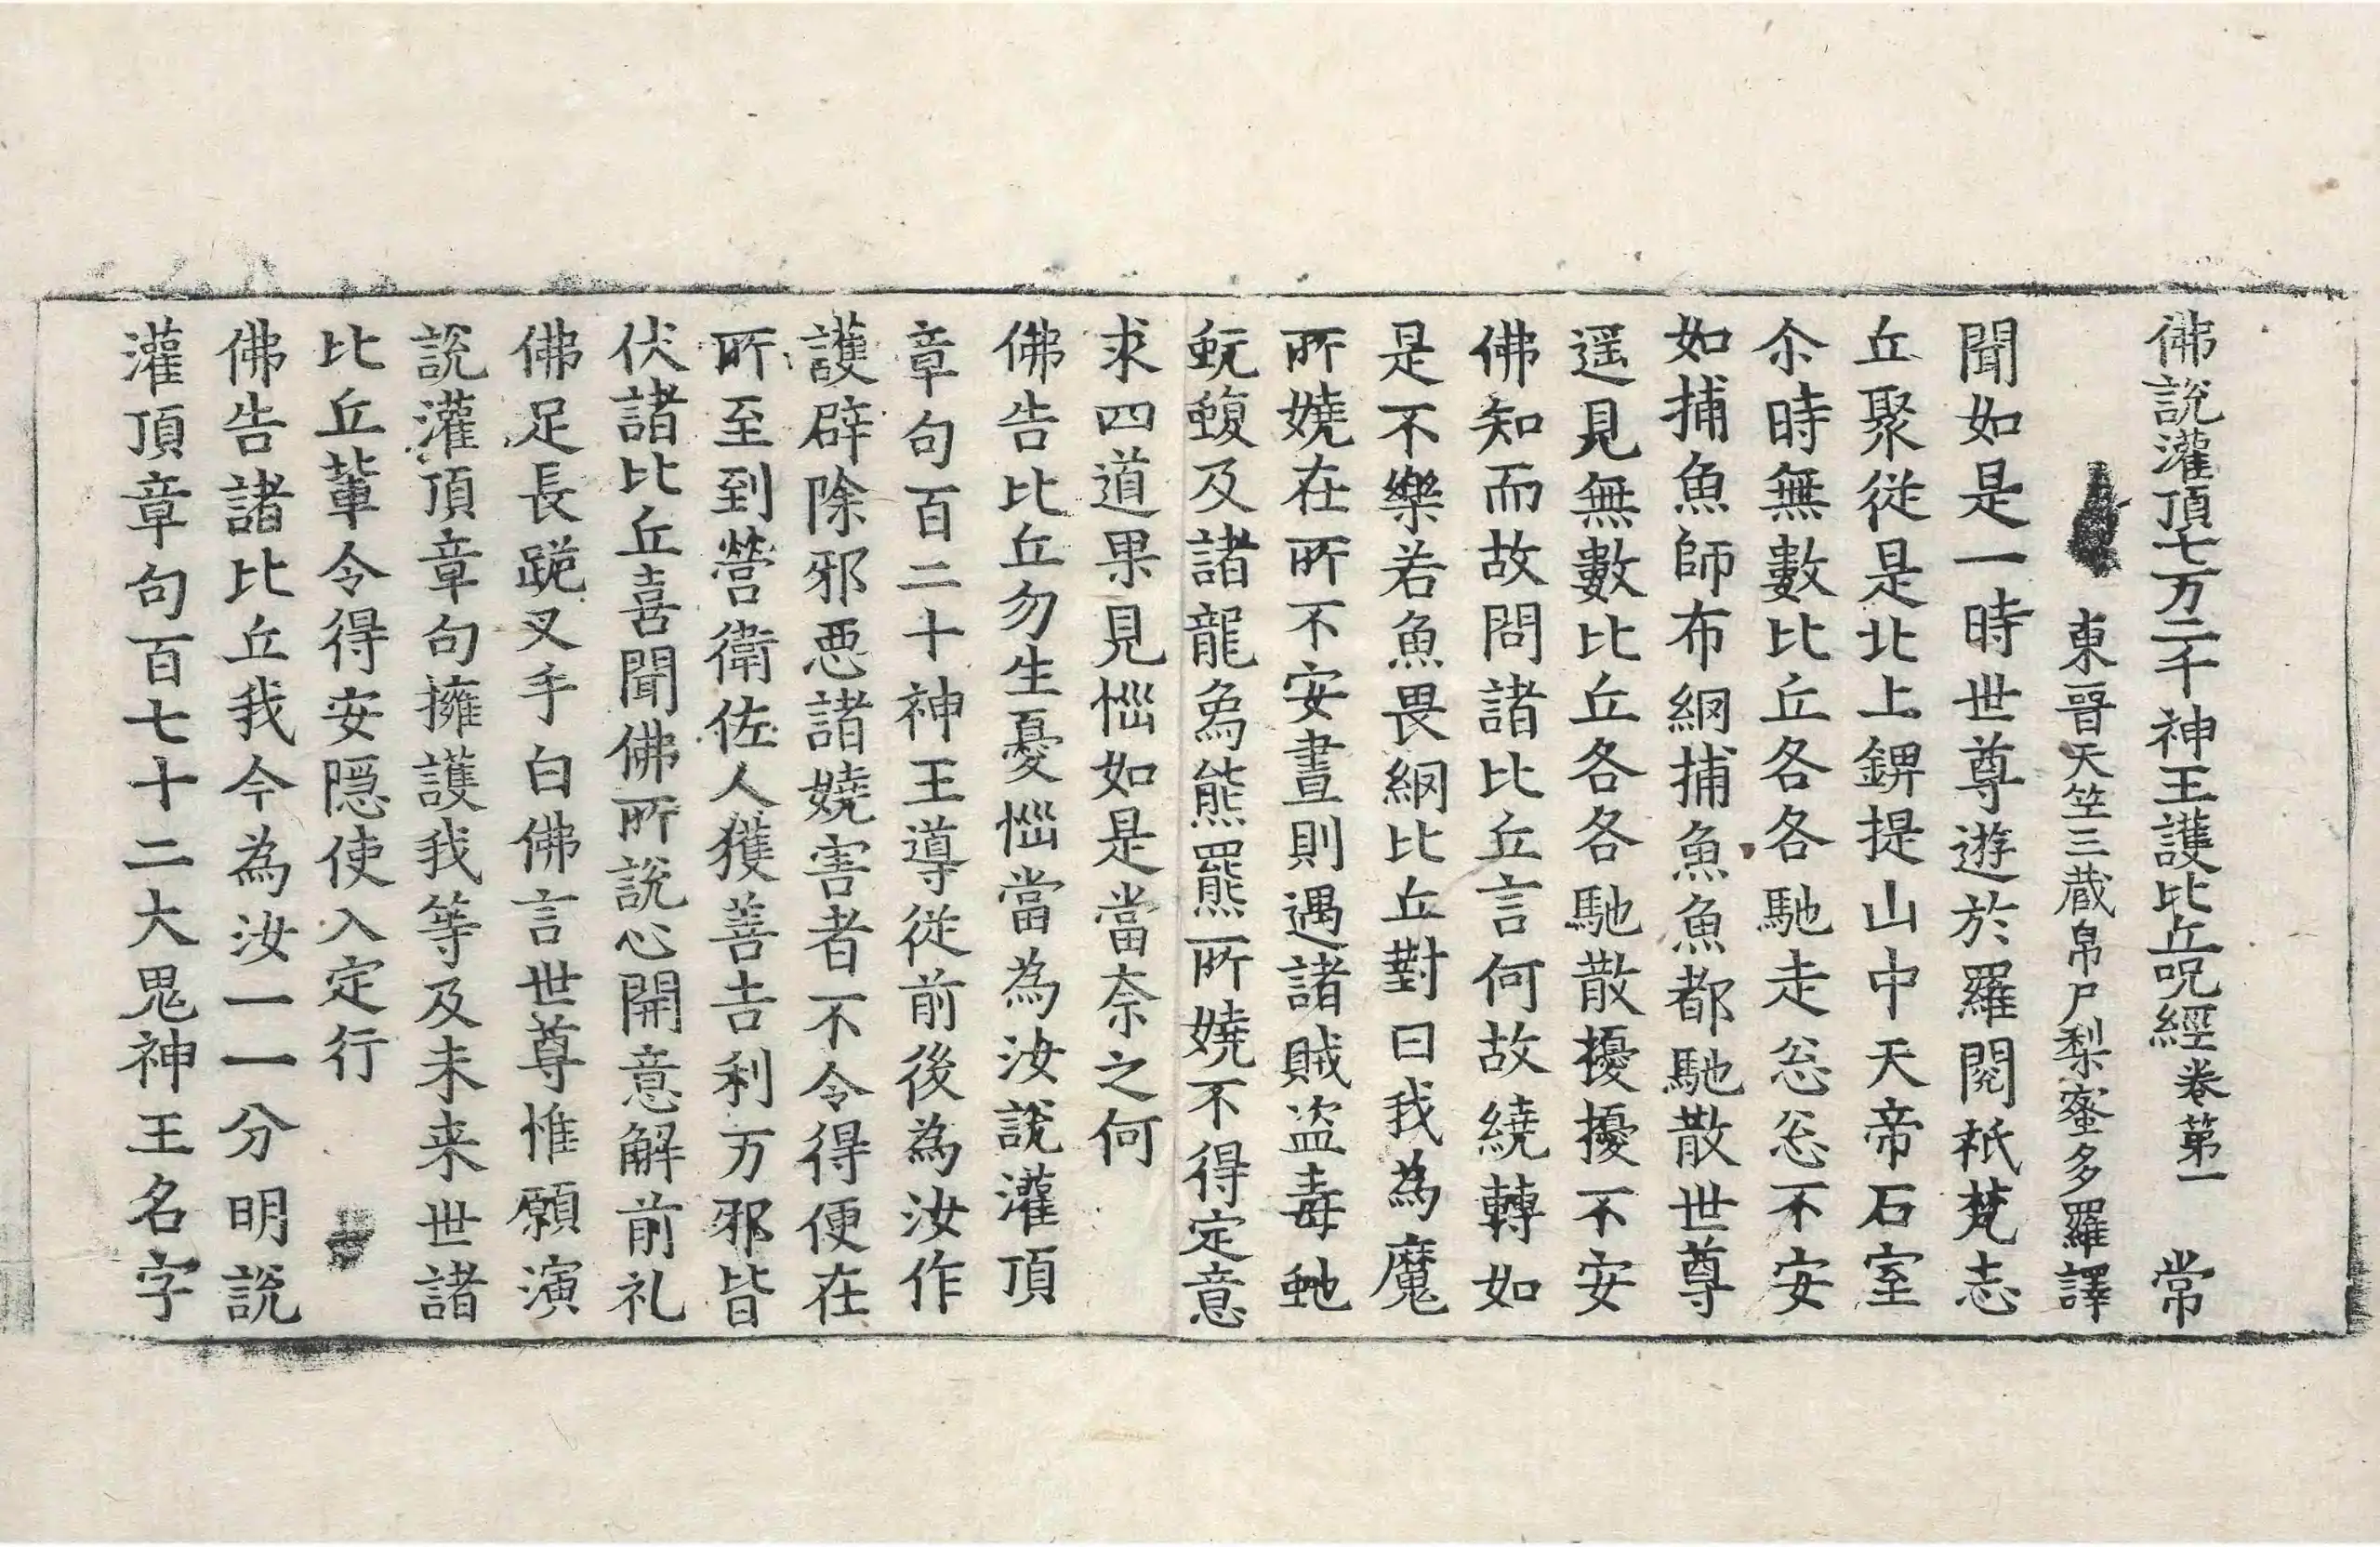 佛說灌頂七万二千神王護比丘呪經卷第一 常
東晉天竺三藏帛尸梨蜜多羅譯
聞如是一時世尊遊於羅閱祇梵志
丘聚從是北上錍提山中天帝石室
尒時無數比丘各各馳走忩忩不安
如捕魚師布網捕魚魚都馳散世尊
遥見無數比丘各各馳散擾擾不安
佛知而故問諸比丘言何故繞轉如
是不樂若魚畏網比丘對曰我為魔
所嬈在所不安晝則遇諸賊盗毒虵
蚖蝮及諸龍象熊羆所嬈不得定意
求四道果見惱如是當奈之何
佛告比丘勿生憂惱當為汝說灌頂
章句百二十神王導從前後為汝作
護辟除邪惡諸嬈害者不令得便在
所至到營衛佐人獲善吉利万邪皆
伏諸比丘喜聞佛所說心開意解前礼
佛足長跪叉手白佛言世尊惟願演
說灌頂章句擁護我等及未来世諸
比丘輩令得安隱使入定行
佛告諸比丘我今為汝一一分明說
灌頂章句百七十二大鬼神王名字